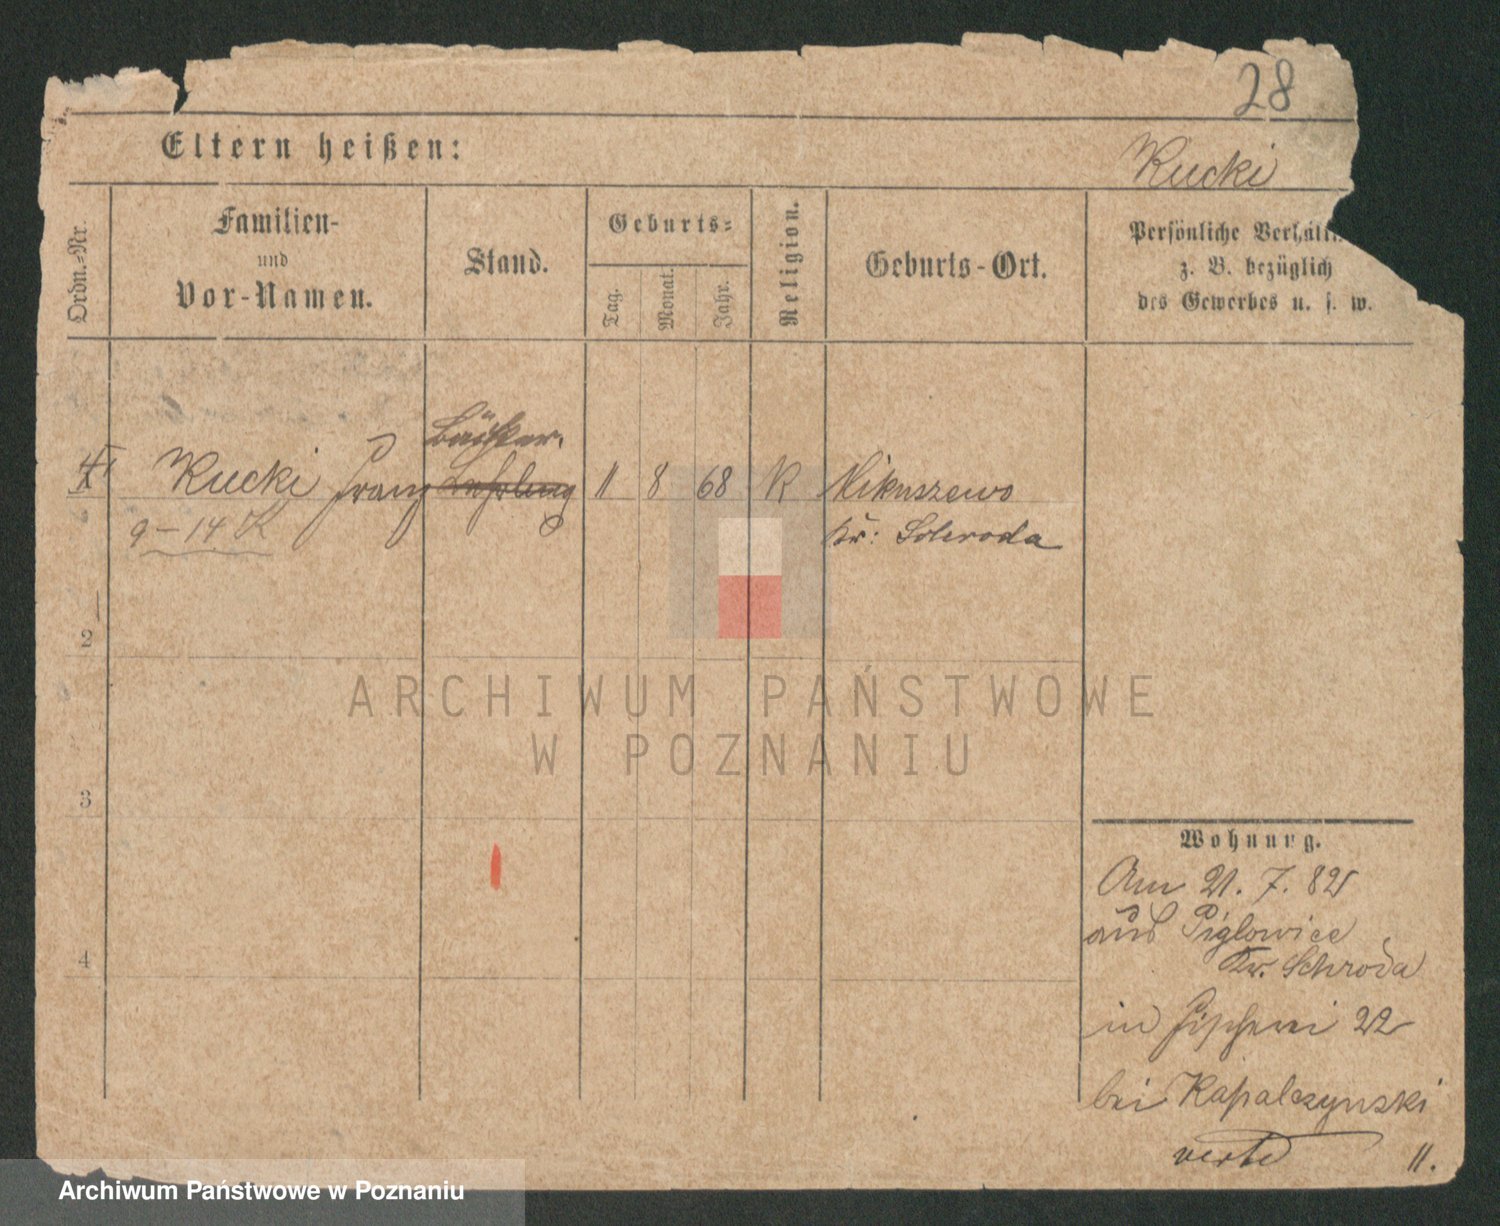 28
Eltern heißen:
Rucki
Ordn.-Nr.
Familien-
und
Vor-Namen.
Stand.
Geburts-
Tag.
Monat.
Jahr.
Religion.
Geburts-Ort.
Persönliche Verhält
z. B. bezüglich
des Gewerbes u. s. w.
Bäcker
Rucki Franz Lehrling 11 8 68 K Mikuszewo
9-14 K
Kr: Schroda
2
3
4
Wohnung.
Am 21. 7. 82
aus Piglowice
Kr. Schroda
in Fischerei 22
bei Kapalczynski
verte
11.
ARCHIWUM PAŃSTWOWE
W POZNANIU
Archiwum Państwowe w Poznaniu